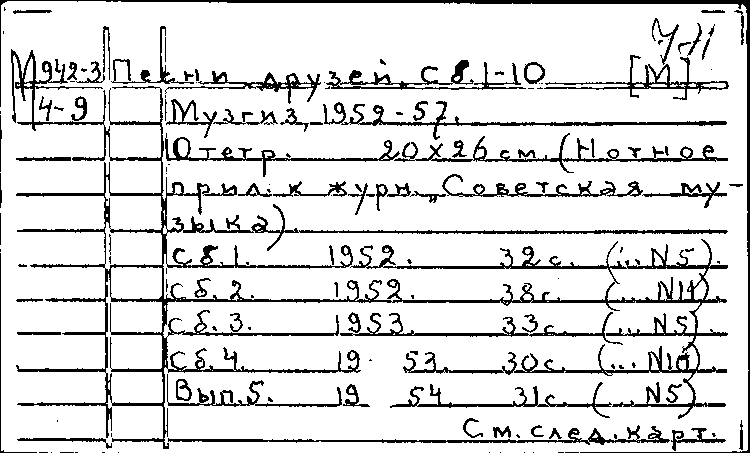 М 942-3 Песни друзей. Сб.1-10 [М.],
4-9 Музгиз, 1952-57.
10 тетр. 20х26 см. (Нотное
прил. к журн. „Советская му-
зыка).
Сб.1. 1952. 32с. (... N5).
Сб.2. 1952. 38с. (... N11).
Сб.3. 1953. 33с. (... N5).
Сб.4. 19 53. 30с. (... N10).
Вып.5. 19 54. 31с. (... N5)
См. след. карт.